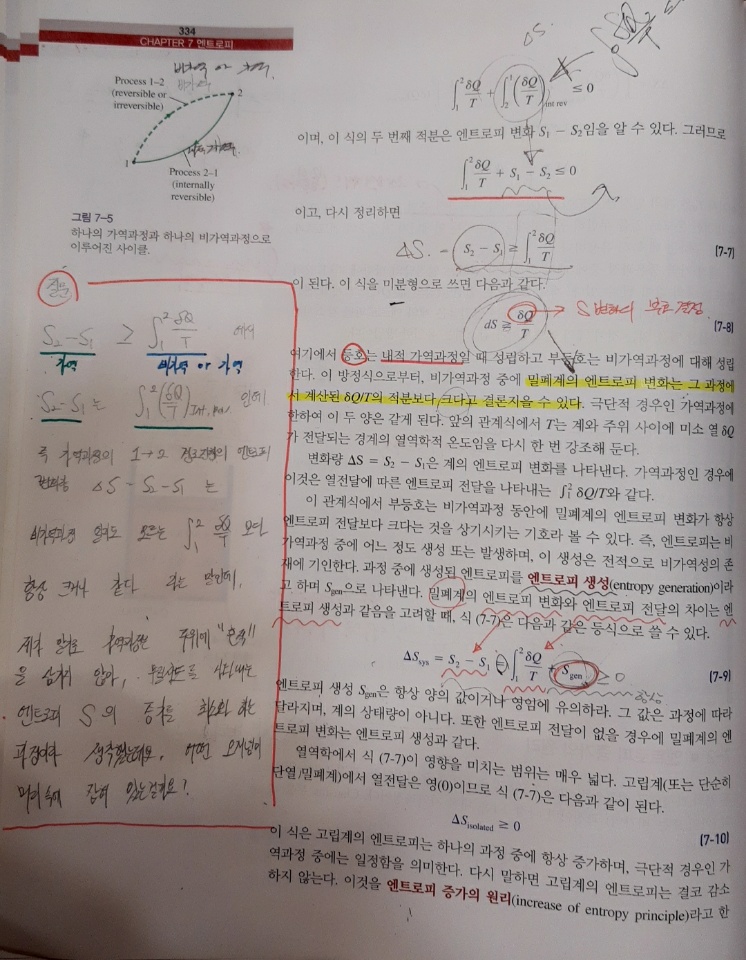 334
CHAPTER 7 엔트로피
비가역 or 가역
Process 1–2
(reversible or
irreversible)
2
1
Process 2–1
(internally
reversible)
그림 7–5
하나의 가역과정과 하나의 비가역과정으로
이루어진 사이클.
질문
S₂-S₁ ≥ ∫₁² δQ/T 에서
가역 비가역 or 가역
S₂-S₁ 는 ∫₁² (δQ/T)Int, rev 인데
즉 가역과정의 1→2 엔트로피
ΔS = S₂-S₁ 는
∫₁² δQ/T 보단
항상 크거나 같다 라는 말인데,
제가 알기로 가역과정은 주위에 "흔적"
을 남기지 않아,
엔트로피 S 의 증가를 최소화 하는
과정이라 생각했는데요. 어떤 오개념이
머리속에 잡혀 있는걸까요?
ΔS
∫ δQ/T
∫₁² δQ/T + ∫₂¹ (δQ/T)int rev ≤ 0
이며, 이 식의 두 번째 적분은 엔트로피 변화 S₁ − S₂임을 알 수 있다. 그러므로
∫₁² δQ/T + S₁ − S₂ ≤ 0
이고, 다시 정리하면
ΔS = S₂ − S₁ ≥ ∫₁² δQ/T (7-7)
이 된다. 이 식을 미분형으로 쓰면 다음과 같다.
dS ≥ δQ/T → S 변화의 부호 결정 (7-8)
여기에서 등호는 내적 가역과정일 때 성립하고 부등호는 비가역과정에 대해 성립
한다. 이 방정식으로부터, 비가역과정 중에 밀폐계의 엔트로피 변화는 그 과정에
서 계산된 δQ/T의 적분보다 크다고 결론지을 수 있다. 극단적 경우인 가역과정에
한하여 이 두 양은 같게 된다. 앞의 관계식에서 T는 계와 주위 사이에 미소 열 δQ
가 전달되는 경계의 열역학적 온도임을 다시 한 번 강조해 둔다.
변화량 ΔS = S₂ − S₁은 계의 엔트로피 변화를 나타낸다. 가역과정인 경우에
이것은 열전달에 따른 엔트로피 전달을 나타내는 ∫₁² δQ/T와 같다.
이 관계식에서 부등호는 비가역과정 동안에 밀폐계의 엔트로피 변화가 항상
엔트로피 전달보다 크다는 것을 상기시키는 기호라 볼 수 있다. 즉, 엔트로피는 비
가역과정 중에 어느 정도 생성 또는 발생하며, 이 생성은 전적으로 비가역성의 존
재에 기인한다. 과정 중에 생성된 엔트로피를 엔트로피 생성(entropy generation)이라
고 하며 Sgen으로 나타낸다. 밀폐계의 엔트로피 변화와 엔트로피 전달의 차이는 엔
트로피 생성과 같음을 고려할 때, 식 (7-7)은 다음과 같은 등식으로 쓸 수 있다.
ΔSsys = S₂ − S₁ = ∫₁² δQ/T + Sgen ≥ 0 (7-9)
항상
엔트로피 생성 Sgen은 항상 양의 값이거나 영임에 유의하라. 그 값은 과정에 따라
달라지며, 계의 상태량이 아니다. 또한 엔트로피 전달이 없을 경우에 밀폐계의 엔
트로피 변화는 엔트로피 생성과 같다.
열역학에서 식 (7-7)이 영향을 미치는 범위는 매우 넓다. 고립계(또는 단순히
단열/밀폐계)에서 열전달은 영(0)이므로 식 (7-7)은 다음과 같이 된다.
ΔSisolated ≥ 0 (7-10)
이 식은 고립계의 엔트로피는 하나의 과정 중에 항상 증가하며, 극단적 경우인 가
역과정 중에는 일정함을 의미한다. 다시 말하면 고립계의 엔트로피는 결코 감소
하지 않는다. 이것을 엔트로피 증가의 원리(increase of entropy principle)라고 한